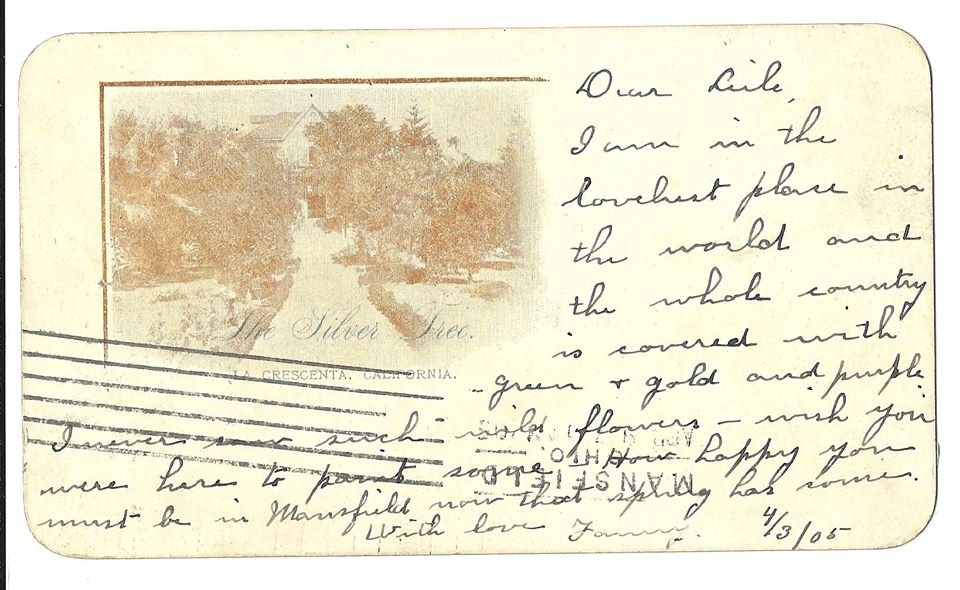 Dear
I am in the
loveliest place in
the world and
the whole country
is covered with
green + gold and purple
I never saw such wild flowers – wish you
were here to paint some. How happy you
must be in Mansfield now that spring has come.
With love Fanny. 4/3/05
The Silver Tree.
LA CRESCENTA, CALIFORNIA.
MANSFIELD
OHIO.
APR